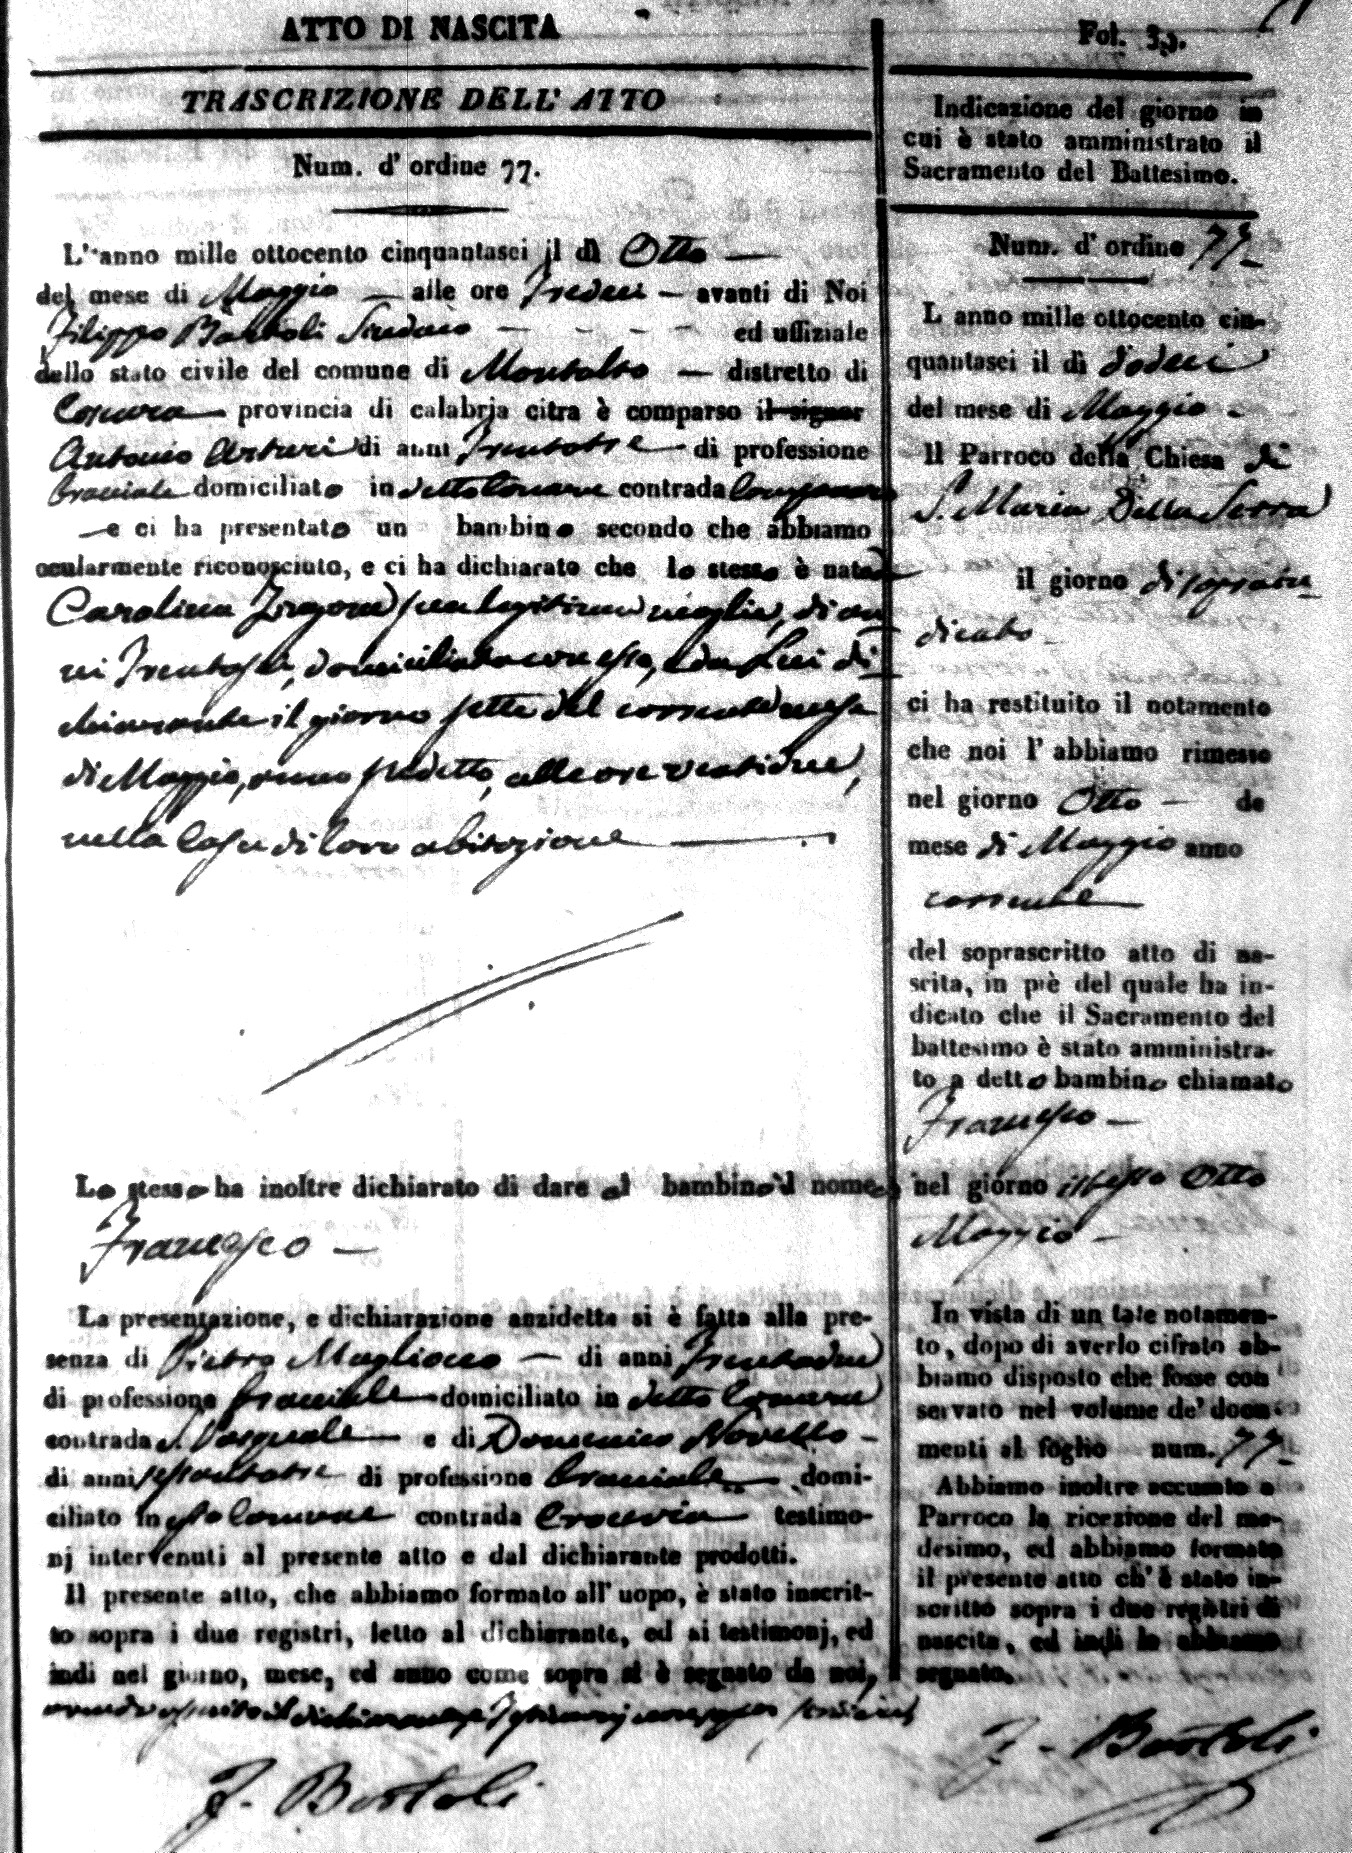 ATTO DI NASCITA
TRASCRIZIONE DELL' ATTO
Num. d' ordine 77.
L' anno mille ottocento cinquantasei il dì Otto
del mese di Maggio alle ore Tredeci avanti di Noi
Filippo Bartoli Sindaco ed uffiziale
dello stato civile del comune di Montalto distretto di
Cosenza provincia di calabria citra è comparso il signor
Antonio Arturi di anni Trentatre di professione
bracciale domiciliato in detto Comune contrada
e ci ha presentato un bambino secondo che abbiamo
ocularmente riconosciuto, e ci ha dichiarato che lo stesso è nato da
Carolina sua legitima moglie, di an
ni domiciliata con esso, e da Lui di
chiarante il giorno sette del corrente mese
di Maggio, anno sudetto, alle ore ventidue,
nella Casa di loro abitazione
Lo stesso ha inoltre dichiarato di dare al bambino il nome
Francesco
La presentazione, e dichiarazione anzidetta si è fatta alla pre-
senza di Pietro Magliocco di anni Trentadue
di professione bracciale domiciliato in detto Comune
contrada S. Pasquale e di Domenico Novello
di anni sessantatre di professione bracciale domi-
ciliato in esso Comune contrada testimo-
nj intervenuti al presente atto e dal dichiarante prodotti.
Il presente atto, che abbiamo formato all' uopo, è stato inscrit-
to sopra i due registri, letto al dichiarante, ed ai testimonj, ed
indi nel giorno, mese, ed anno come sopra si è segnato da noi,
il dichiarante
F. Bartoli
Fol. 39.
Indicazione del giorno in
cui è stato amministrato il
Sacramento del Battesimo.
Num. d' ordine 77
L anno mille ottocento cin-
quantasei il dì dodeci
del mese di Maggio
Il Parroco della Chiesa di
S. Maria Della Serra
il giorno di sopra in
dicato
ci ha restituito il notamento
che noi l' abbiamo rimesso
nel giorno Otto de
mese di Maggio anno
corrente
del soprascritto atto di na-
scita, in piè del quale ha in-
dicato che il Sacramento del
battesimo è stato amministra-
to a detto bambino chiamato
Francesco
nel giorno istesso Otto
Maggio
In vista di un tale notamen-
to, dopo di averlo cifrato ab-
biamo disposto che fosse con
servato nel volume de' docu-
menti al foglio num. 77
Abbiamo inoltre accusato a
Parroco la ricezione del me-
desimo, ed abbiamo formato
il presente atto ch' è stato in-
scritto sopra i due registri di
nascita, ed indi lo abbiamo
segnato.
F. Bartoli